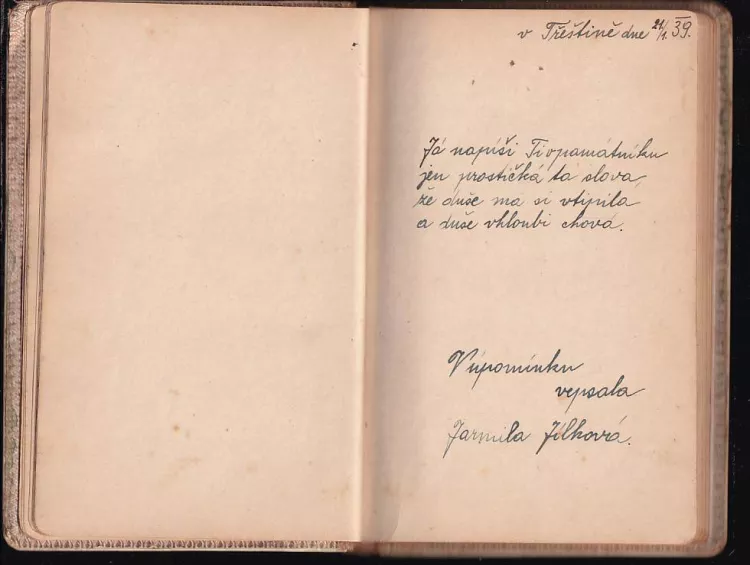 v Třeštině dne 21/1. 39.
Já napíši Ti v památníku
jen prostičká ta slova,
že duše má si vtipila
a duše v hloubi chová.
Vzpomínku
vepsala
Jarmila Jílková.